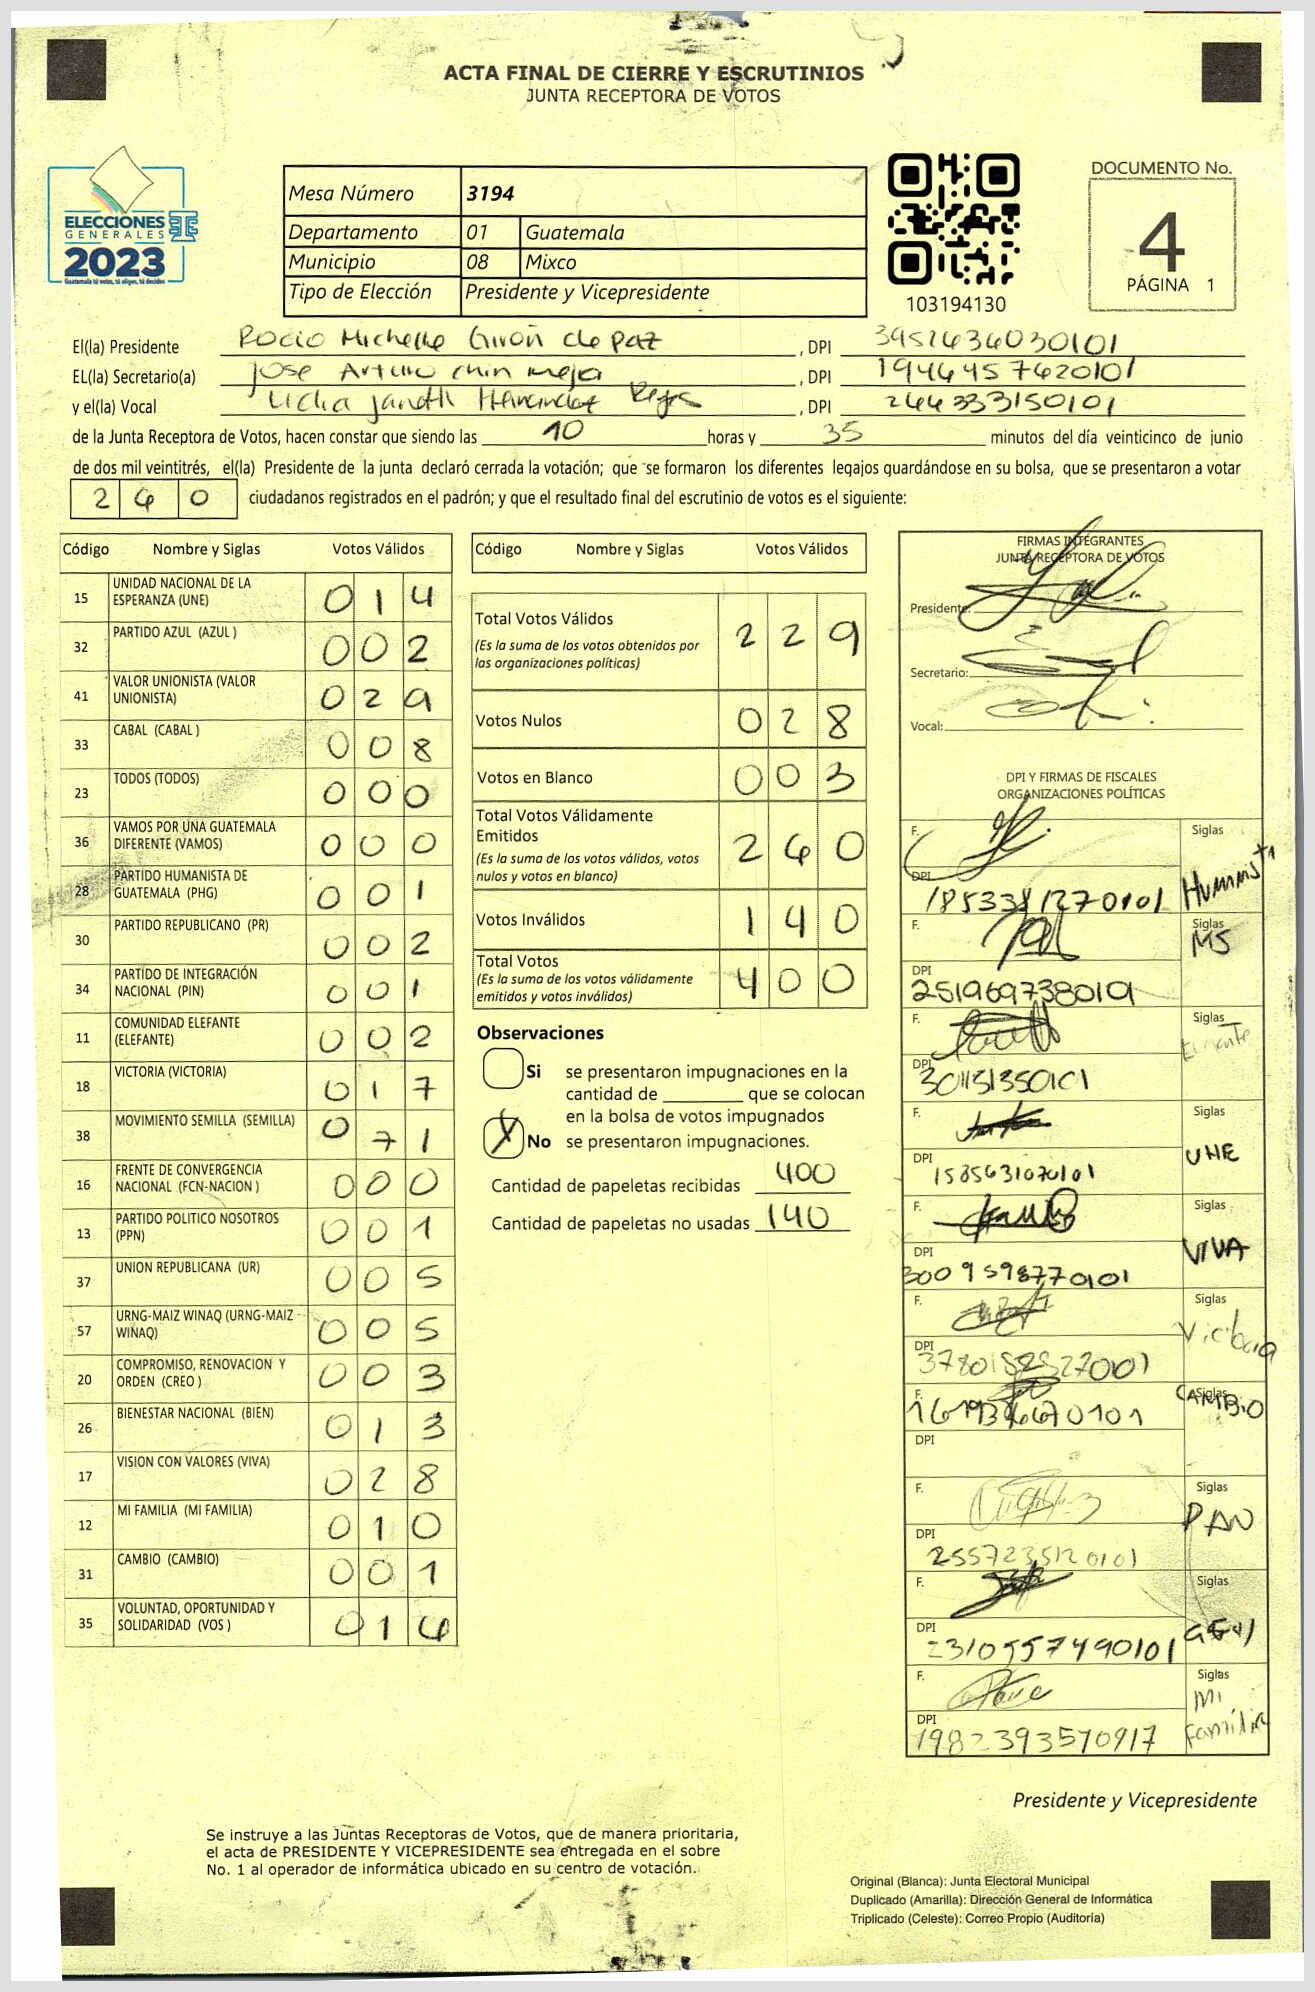 ACTA FINAL DE CIERRE Y ESCRUTINIOS
JUNTA RECEPTORA DE VOTOS
ELECCIONES
GENERALES
2023
Guatemala tú votas, tú eliges, tú decides
Mesa Número 3194
Departamento 01 Guatemala
Municipio 08 Mixco
Tipo de Elección Presidente y Vicepresidente
103194130
DOCUMENTO No.
4
PÁGINA 1
El(la) Presidente Rocio Michelle Girón de Paz, DPI 3952634030101
EL(la) Secretario(a) Jose Arturo chin mejia, DPI 1944457620101
y el(la) Vocal Lidia Janeth Hernandez Reyes, DPI 244333150101
de la Junta Receptora de Votos, hacen constar que siendo las 10 horas y 35 minutos del día veinticinco de junio
de dos mil veintitrés, el(la) Presidente de la junta declaró cerrada la votación; que se formaron los diferentes legajos guardándose en su bolsa, que se presentaron a votar
260 ciudadanos registrados en el padrón; y que el resultado final del escrutinio de votos es el siguiente:
Código Nombre y Siglas Votos Válidos
15 UNIDAD NACIONAL DE LA ESPERANZA (UNE) 014
32 PARTIDO AZUL (AZUL ) 002
41 VALOR UNIONISTA (VALOR UNIONISTA) 029
33 CABAL (CABAL ) 008
23 TODOS (TODOS) 000
36 VAMOS POR UNA GUATEMALA DIFERENTE (VAMOS) 000
28 PARTIDO HUMANISTA DE GUATEMALA (PHG) 001
30 PARTIDO REPUBLICANO (PR) 002
34 PARTIDO DE INTEGRACIÓN NACIONAL (PIN) 001
11 COMUNIDAD ELEFANTE (ELEFANTE) 002
18 VICTORIA (VICTORIA) 017
38 MOVIMIENTO SEMILLA (SEMILLA) 071
16 FRENTE DE CONVERGENCIA NACIONAL (FCN-NACION ) 000
13 PARTIDO POLITICO NOSOTROS (PPN) 001
37 UNION REPUBLICANA (UR) 005
57 URNG-MAIZ WINAQ (URNG-MAIZ WINAQ) 005
20 COMPROMISO, RENOVACION Y ORDEN (CREO ) 003
26 BIENESTAR NACIONAL (BIEN) 013
17 VISION CON VALORES (VIVA) 028
12 MI FAMILIA (MI FAMILIA) 010
31 CAMBIO (CAMBIO) 001
35 VOLUNTAD, OPORTUNIDAD Y SOLIDARIDAD (VOS ) 016
Código Nombre y Siglas Votos Válidos
Total Votos Válidos 229
(Es la suma de los votos obtenidos por las organizaciones políticas)
Votos Nulos 028
Votos en Blanco 003
Total Votos Válidamente Emitidos 260
(Es la suma de los votos válidos, votos nulos y votos en blanco)
Votos Inválidos 140
Total Votos 400
(Es la suma de los votos válidamente emitidos y votos inválidos)
Observaciones
Si se presentaron impugnaciones en la
cantidad de ________ que se colocan
en la bolsa de votos impugnados
X No se presentaron impugnaciones.
Cantidad de papeletas recibidas 400
Cantidad de papeletas no usadas 140
FIRMAS INTEGRANTES
JUNTA RECEPTORA DE VOTOS
Presidente:
Secretario:
Vocal:
DPI Y FIRMAS DE FISCALES
ORGANIZACIONES POLÍTICAS
F. Siglas
DPI 1853381270101
F. Siglas MS
DPI 2519697380101
F. Siglas
DPI 301151350101
F. Siglas UNE
DPI 1585631070101
F. Siglas VIVA
DPI 3009598770101
F. Siglas Victoria
DPI
F. Siglas CAMBIO
DPI
F. Siglas PAN
DPI 2557235120101
F. Siglas
DPI 2310557490101
F. Siglas Mi Familia
DPI 1982393570917
Presidente y Vicepresidente
Se instruye a las Juntas Receptoras de Votos, que de manera prioritaria,
el acta de PRESIDENTE Y VICEPRESIDENTE sea entregada en el sobre
No. 1 al operador de informática ubicado en su centro de votación.
Original (Blanca): Junta Electoral Municipal
Duplicado (Amarilla): Dirección General de Informática
Triplicado (Celeste): Correo Propio (Auditoría)